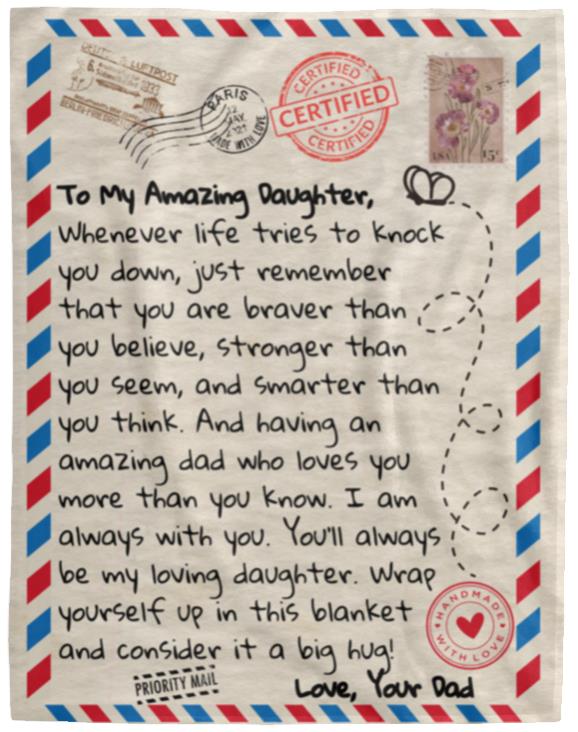 DEUTSCHE LUFTPOST
PARIS
MADE WITH LOVE
CERTIFIED
CERTIFIED
CERTIFIED
USA 15c
To My Amazing Daughter,
Whenever life tries to knock
you down, just remember
that you are braver than
you believe, stronger than
you seem, and smarter than
you think. And having an
amazing dad who loves you
more than you know. I am
always with you. You'll always
be my loving daughter. Wrap
yourself up in this blanket
and consider it a big hug!
HANDMADE
WITH LOVE
PRIORITY MAIL
Love, Your Dad